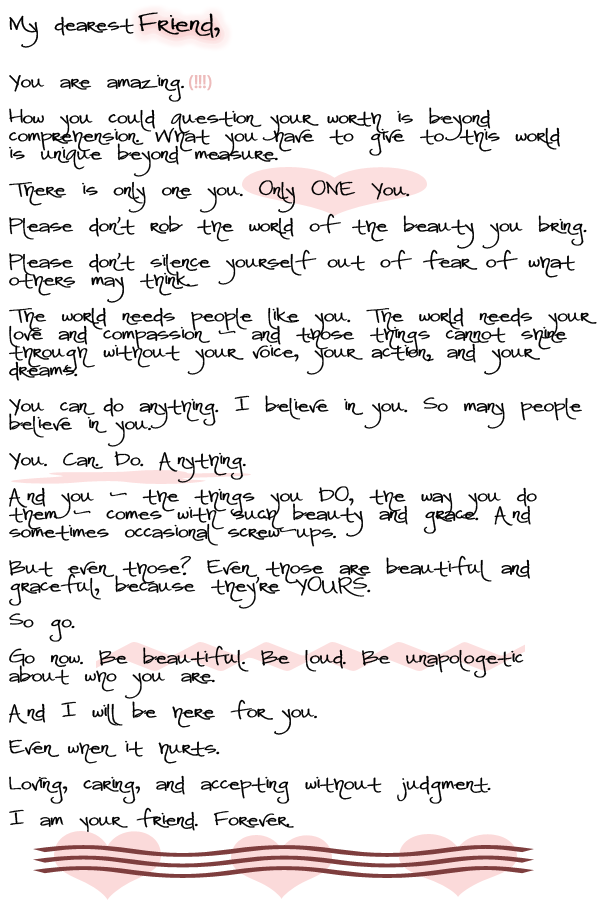 My dearest Friend,
You are amazing. (!!!)
How you could question your worth is beyond
comprehension. What you have to give to this world
is unique beyond measure.
There is only one you. Only ONE You.
Please don't rob the world of the beauty you bring.
Please don't silence yourself out of fear of what
others may think.
The world needs people like you. The world needs your
love and compassion – and those things cannot shine
through without your voice, your action, and your
dreams.
You can do anything. I believe in you. So many people
believe in you.
You. Can. Do. Anything.
And you – the things you DO, the way you do
them – comes with such beauty and grace. And
sometimes occasional screw-ups.
But even those? Even those are beautiful and
graceful, because they're YOURS.
So go.
Go now. Be beautiful. Be loud. Be unapologetic
about who you are.
And I will be here for you.
Even when it hurts.
Loving, caring, and accepting without judgment.
I am your friend. Forever.